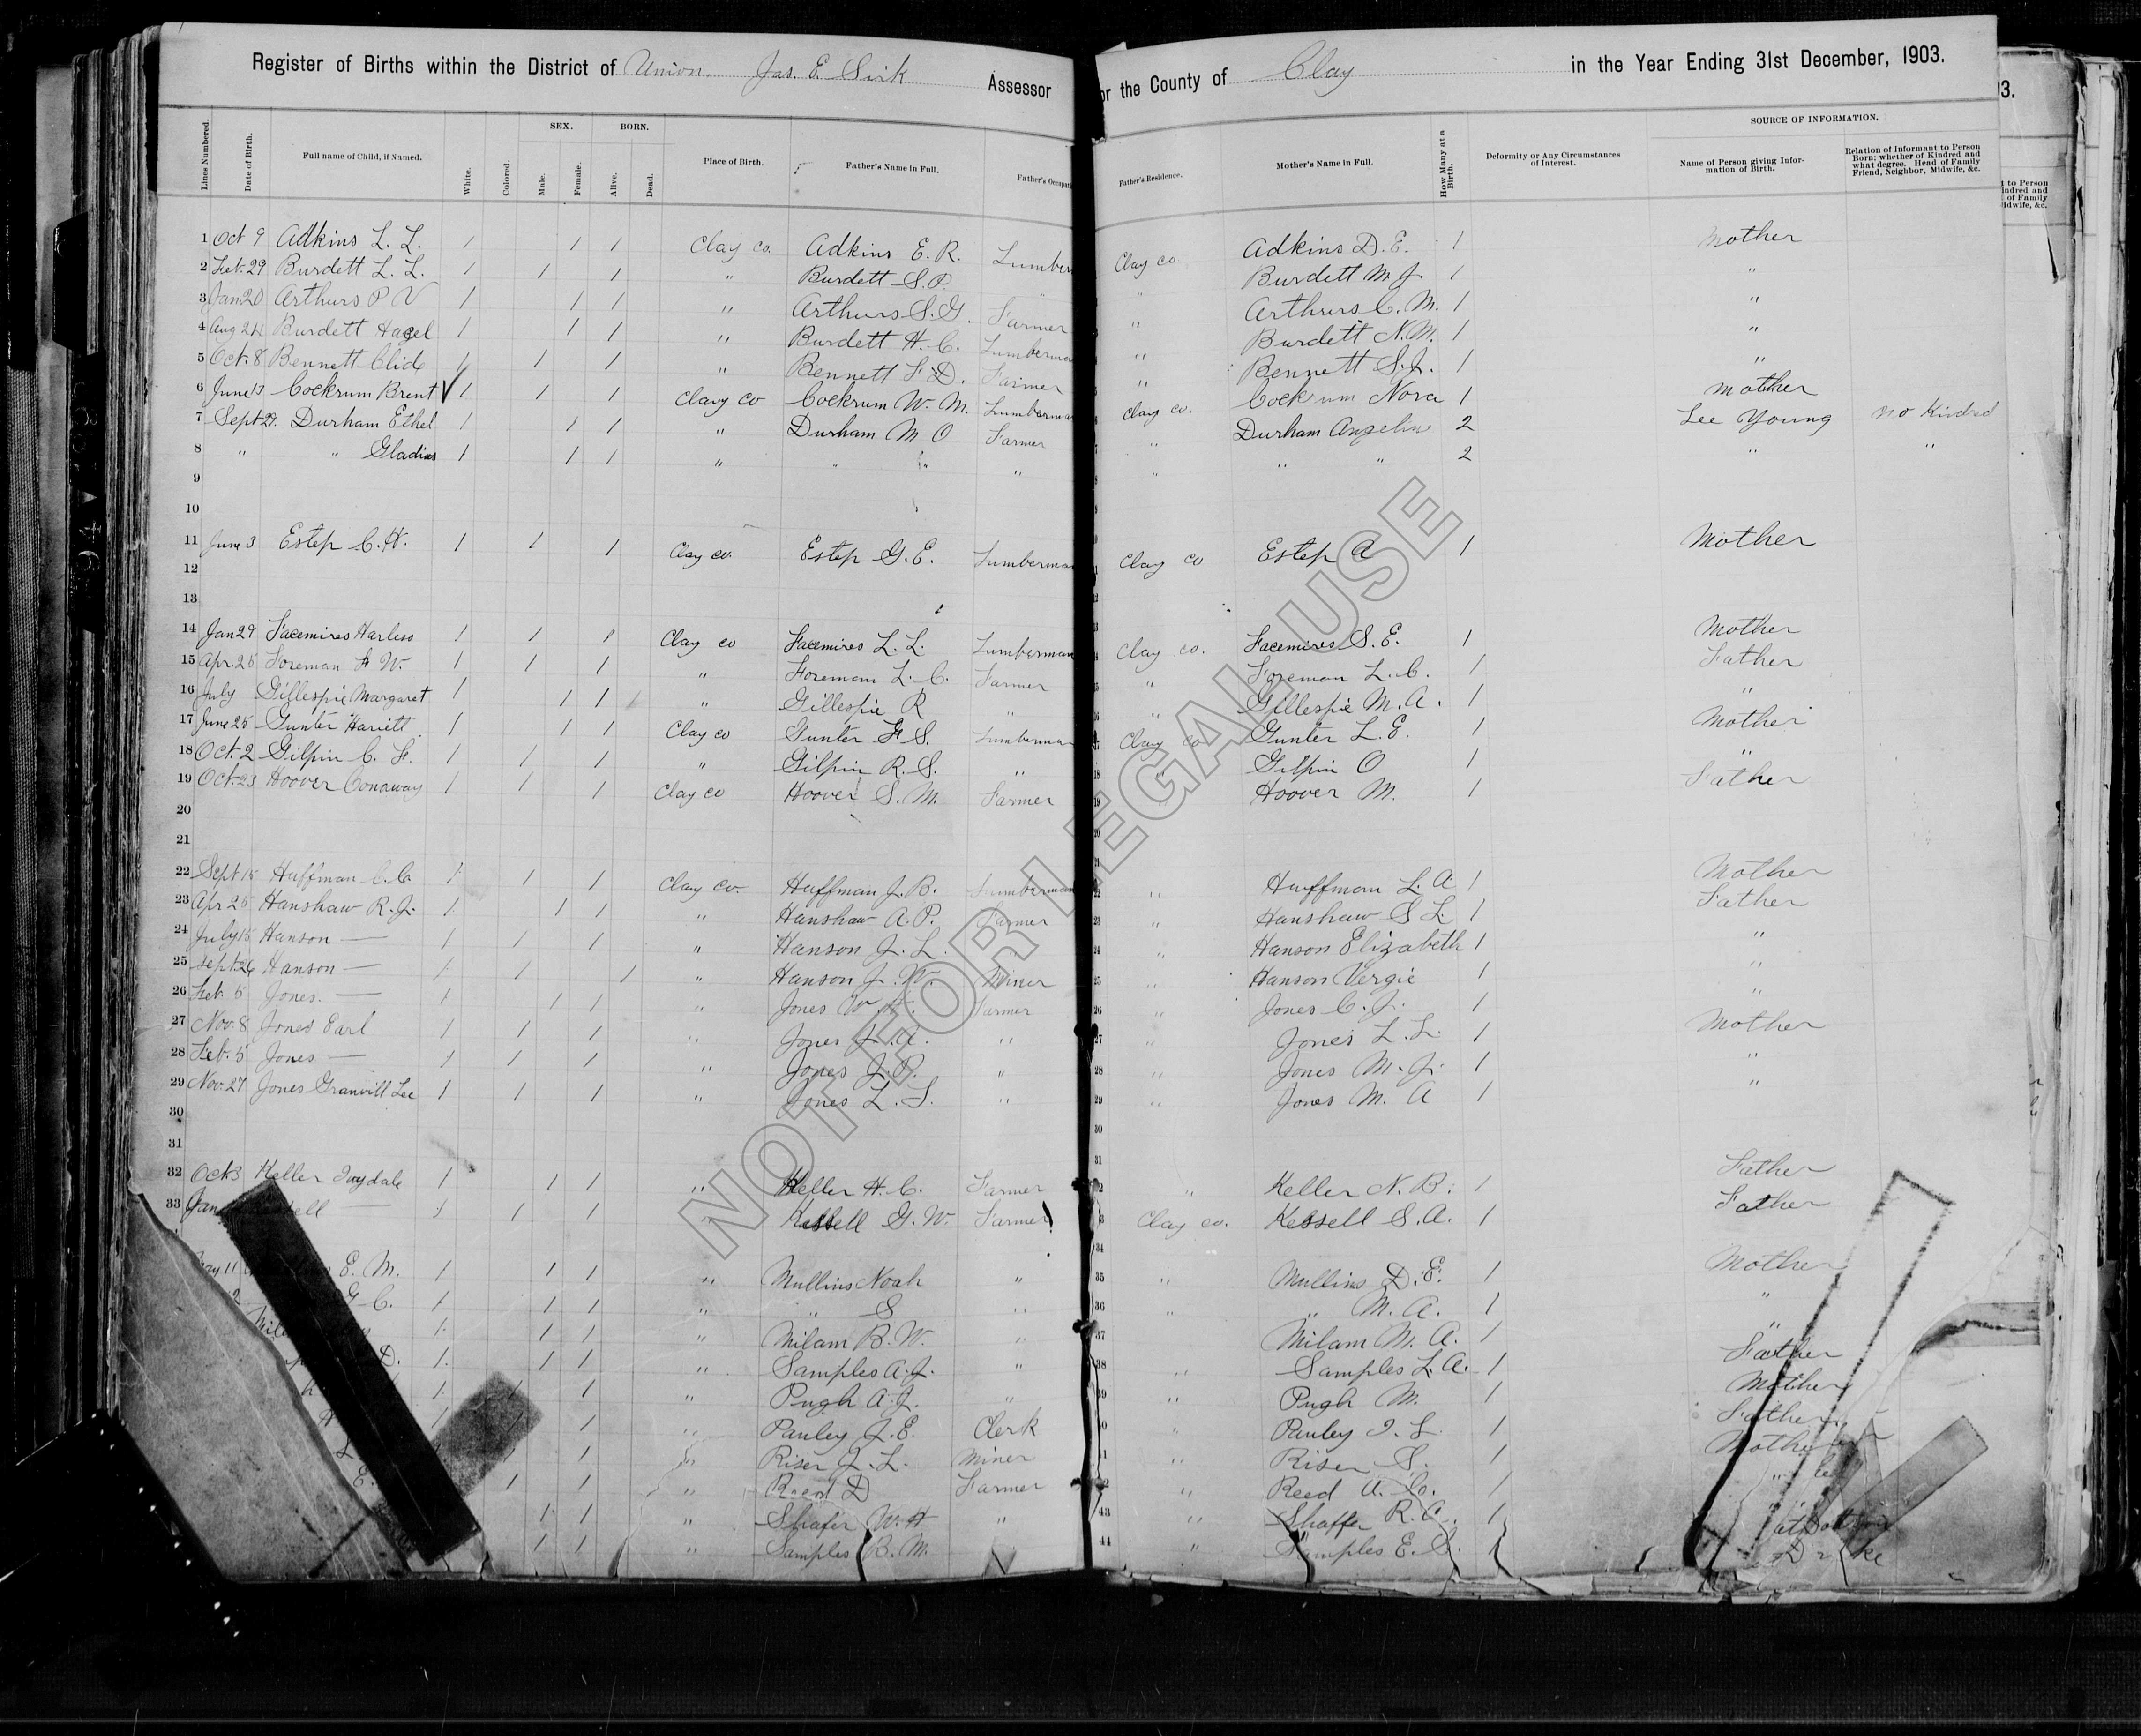 Register of Births within the District of Union Jas. E. Sirk Assessor for the County of Clay in the Year Ending 31st December, 1903.
Lines Numbered. Date of Birth. Full name of Child, if Named. White. Colored. SEX. Male. Female. BORN. Alive. Dead. Place of Birth. Father's Name in Full. Father's Occupati Father's Residence. Mother's Name in Full. How Many at a Birth. Deformity or Any Circumstances of Interest. SOURCE OF INFORMATION. Name of Person giving Information of Birth. Relation of Informant to Person Born: whether of Kindred and what degree, Head of Family Friend, Neighbor, Midwife, &c.
1 Oct 9 Adkins L. L. 1 1 1 Clay co. Adkins E. R. Lumber Clay co Adkins D. E. 1 Mother
2 Feb. 29 Burdett L. L. 1 1 1 " Burdett S. P. " Burdett M. J. 1 "
3 Jan 20 Arthurs P V 1 1 1 " Arthurs S. G. Farmer " Arthurs C. M. 1 "
4 Aug 24 Burdett Hazel 1 1 1 " Burdett H. C. Lumberma " Burdett N. M. 1 "
5 Oct. 8 Bennett Clide 1 1 1 " Bennett F. D. Farmer " Bennett S. J. 1 "
6 June 13 Cockrum Brent 1 1 1 Clay co Cockrum W. M. Lumberma Clay co. Cockrum Nora 1 Mother
7 Sept 27. Durham Ethel 1 1 1 " Durham M O Farmer " Durham Angeline 2 Lee Young no Kindred
8 " " Gladius 1 1 1 " " " " " " " 2 " "
9
10
11 June 3 Estep C. H. 1 1 1 Clay co. Estep G. E. Lumberma Clay co Estep A 1 Mother
12
13
14 Jan 29 Facemires Harless 1 1 1 Clay co Facemires L. L. Lumberman Clay co. Facemires S. E. 1 Mother
15 Apr. 25 Foreman F W. 1 1 1 " Foreman L. C. Farmer " Foreman L. C. 1 Father
16 July Gillespie Margaret 1 1 1 " Gillespie R " " Gillespie M. A. 1 "
17 June 25 Gunter Hariett 1 1 1 Clay co Gunter F S. Lumberman Clay co Gunter L. E. 1 Mother
18 Oct. 2 Gilpin C. F. 1 1 1 " Gilpin R. S. " " Gilpin O 1 "
19 Oct. 23 Hoover Conaway 1 1 1 Clay co Hoover S. M. Farmer Hoover M. 1 Father
20
21
22 Sept 15 Huffman C. C. 1 1 1 Clay co. Huffman J. B. Lumberman " Huffman L. A. 1 Mother
23 Apr 25 Hanshaw R. J. 1 1 1 " Hanshaw A. P. Farmer " Hanshaw S L. 1 Father
24 July 15 Hanson — 1 1 1 " Hanson J. L. " Hanson Elizabeth 1 "
25 Sept 26 Hanson — 1 1 1 " Hanson J. W. Miner " Hanson Vergie 1 "
26 Feb. 5 Jones. — 1 1 1 " Jones W Farmer " Jones C. J. 1 "
27 Nov. 8 Jones Earl 1 1 1 " Jones J. A. " " Jones L. L. 1 Mother
28 Feb. 5 Jones — 1 1 1 " Jones J. P. " " Jones M. J. 1 "
29 Nov. 27 Jones Granvill Lee 1 1 1 " Jones L. S. " " Jones M. A 1 "
30
31
32 Oct 3 Keller Ivydale 1 1 1 " Keller H. C. Farmer " Keller N. B. 1 Father
33 Jan 1 1 1 " Kessell G. W. Farmer Clay co. Kessell S. A. 1 Father
34
35 May 11 E. M. 1 1 1 " Mullins Noah " " Mullins D. E. 1 Mother
36 G. C. 1 1 1 " " S " " " M. A. 1 "
37 1 1 1 " Milam B. W. " " Milam M. A. 1 "
38 D. 1 1 1 " Samples A. J. " " Samples L. A. 1 Father
39 1 1 1 " Pugh A. J. " " Pugh M. 1 Mother
1 1 " Pauley J. E. Clerk " Pauley I. S. 1 Father
1 " Riser J. L. Miner " Riser S. 1 Mother
E. 1 1 " Reed D Farmer " Reed A. Co. 1 "
43 1 1 " Shafer W. H " " Shaffer R. A. 1
44 1 1 " Samples B. M. " Samples E. 1
NOT FOR LEGAL USE